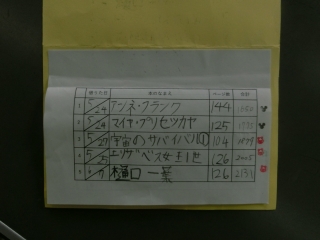 借りた日 本のなまえ ページ数 合計
1 5/24 アンネ・フランク 144
2 5/24 マイヤ・プリセツカヤ 125
3 5/27 宇宙のサバイバル① 104
4 5/25 エリザベス女王1世 126 2005
5 6/7 樋口一葉 126 2131